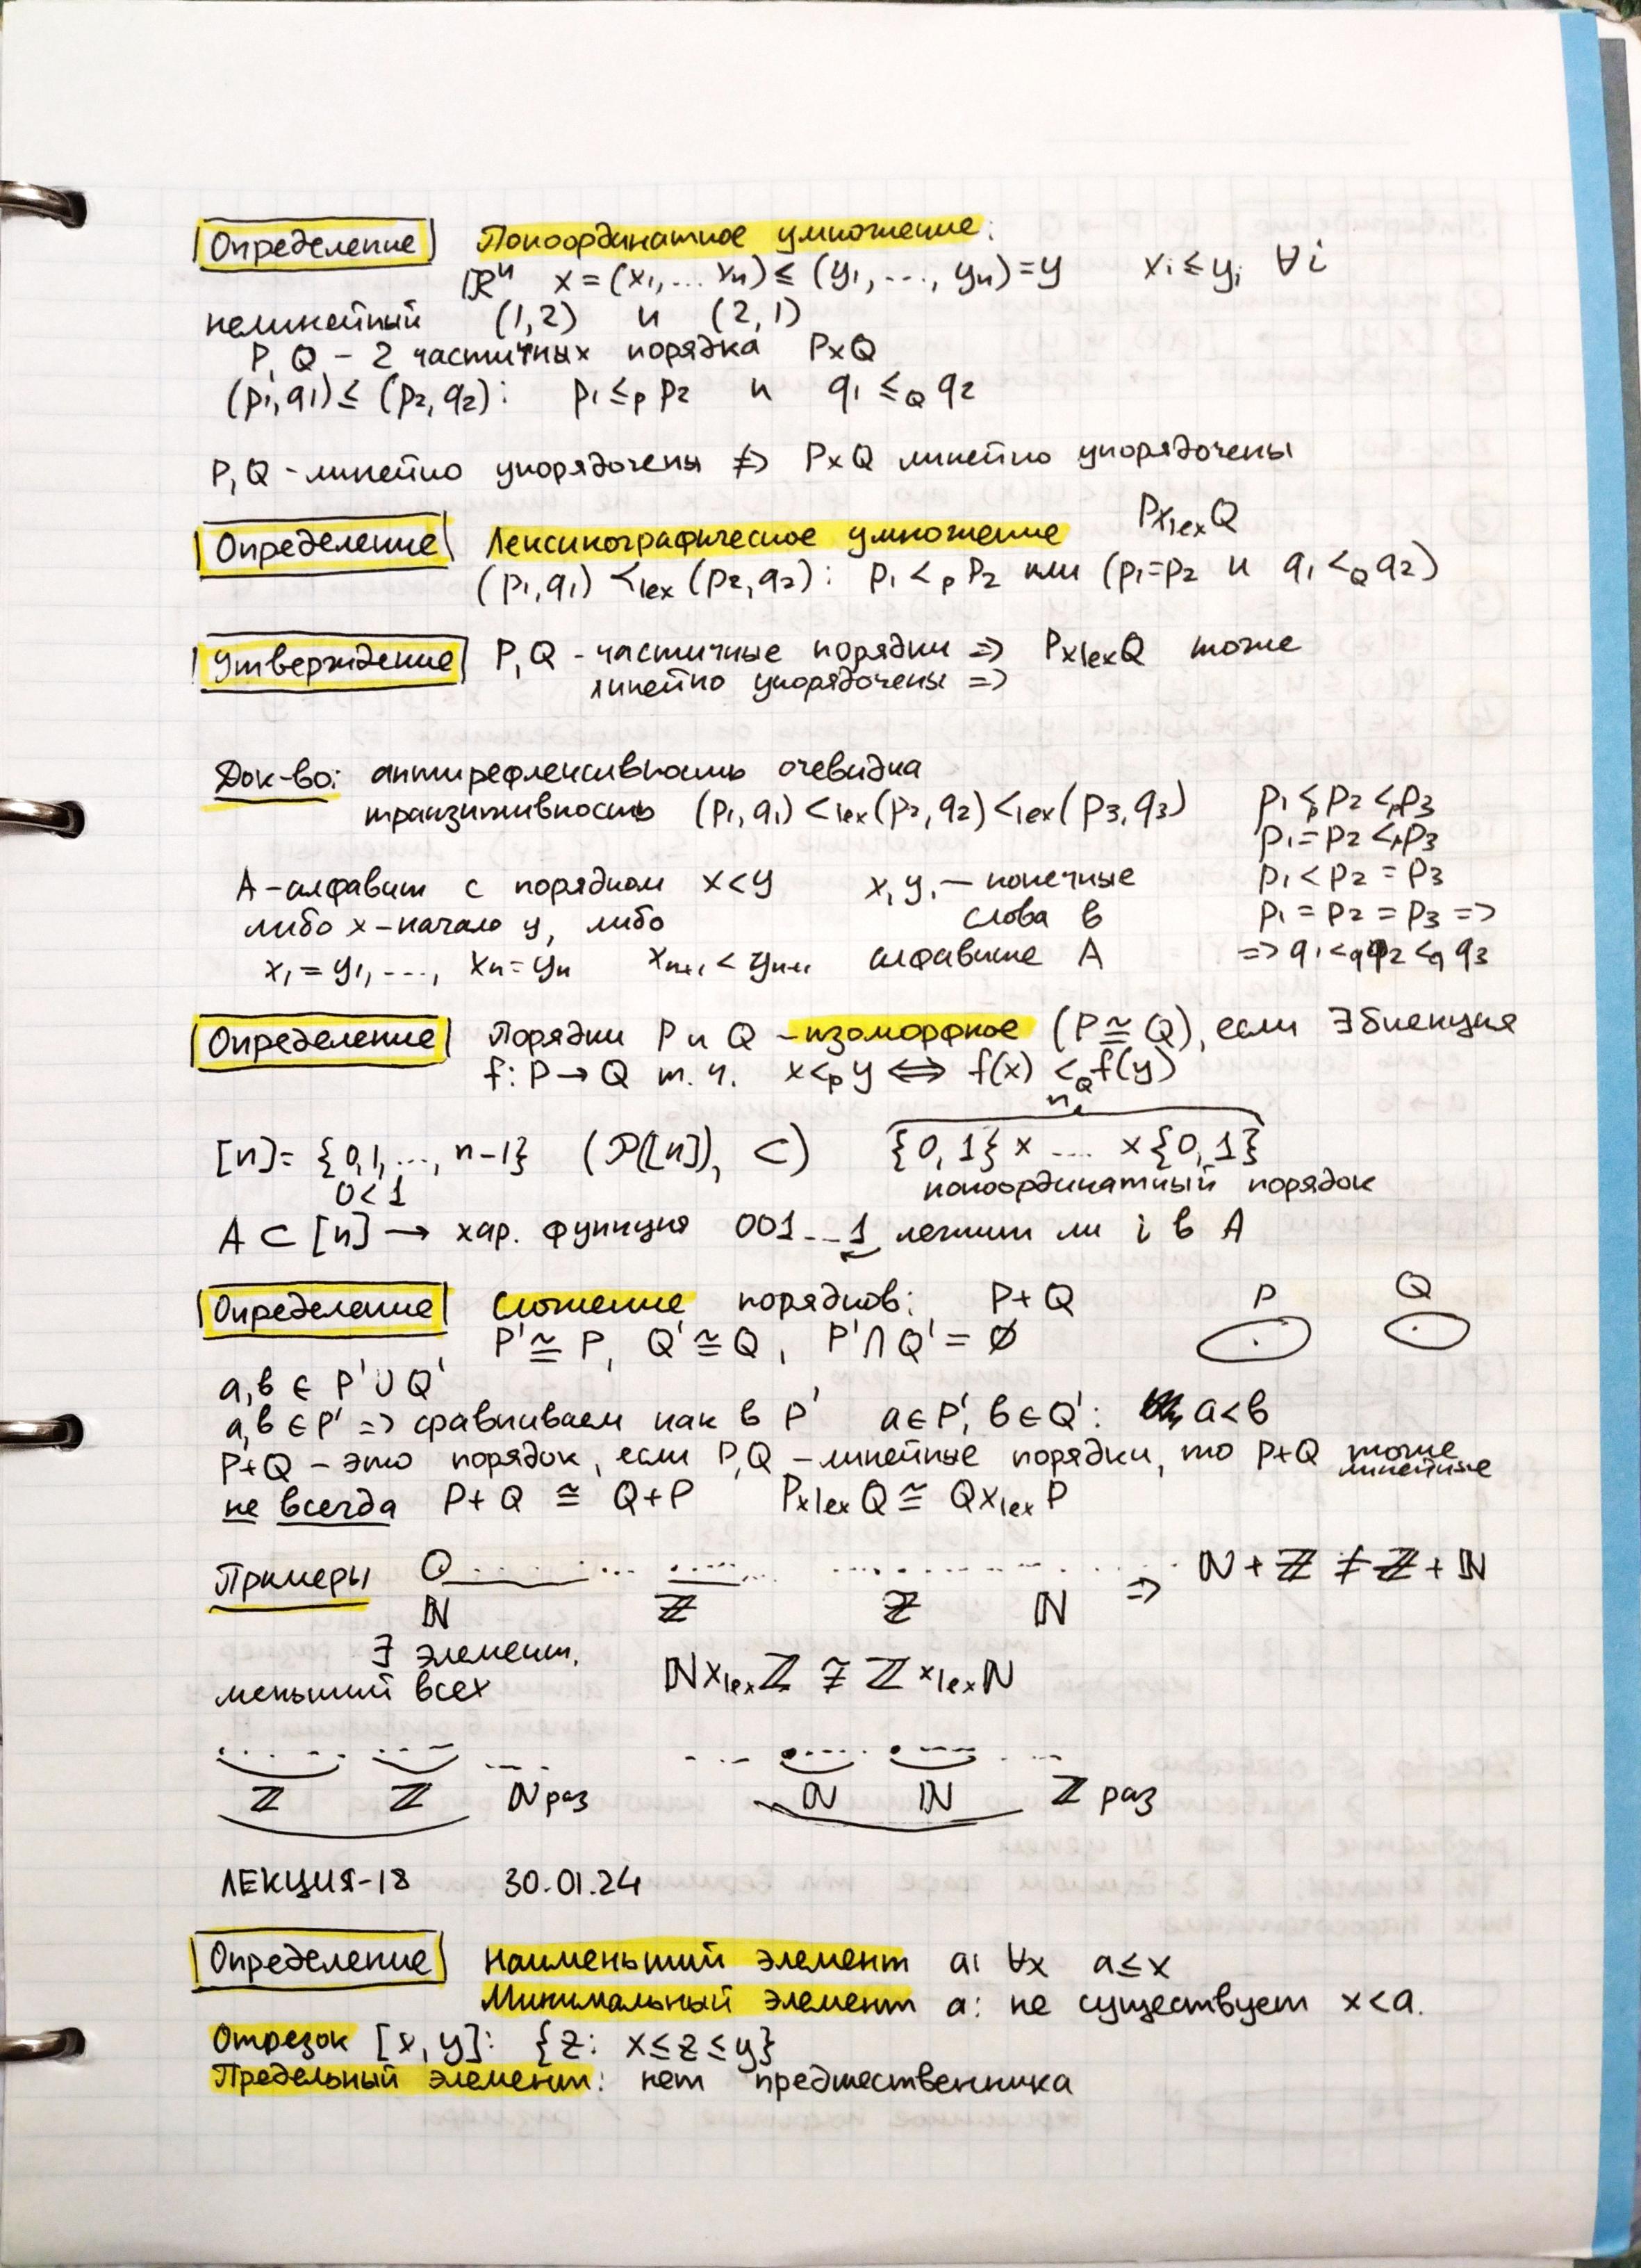 Определение Покоординатное умножение:
ℝⁿ x = (x₁, ... xₙ) ≤ (y₁, ..., yₙ) = y xᵢ ≤ yᵢ ∀i
нелинейный (1,2) и (2,1)
P, Q – 2 частичных порядка P×Q
(p₁,q₁) ≤ (p₂,q₂): p₁ ≤_P p₂ и q₁ ≤_Q q₂
P, Q – линейно упорядочены ⇏ P×Q линейно упорядочены
Определение Лексикографическое умножение P×_lex Q
(p₁,q₁) <_lex (p₂,q₂): p₁ <_P p₂ или (p₁=p₂ и q₁ <_Q q₂)
Утверждение P, Q – частичные порядки => P×_lex Q тоже
линейно упорядочены =>
Док-во: антирефлексивность очевидна
транзитивность (p₁,q₁) <_lex (p₂,q₂) <_lex (p₃,q₃) p₁ <_P p₂ <_P p₃
p₁ = p₂ <_P p₃
A – алфавит с порядком x<y x, y, – конечные p₁ < p₂ = p₃
либо x – начало y, либо слова в p₁ = p₂ = p₃ =>
x₁ = y₁, ..., xₙ = yₙ xₙ₊₁ < yₙ₊₁ алфавите A => q₁ <_q q₂ <_q q₃
Определение Порядки P и Q – изоморфное (P ≅ Q), если ∃ биекция
f: P → Q т.ч. x <_P y ⟺ f(x) <_Q f(y)
n
[n] = {0,1,..., n-1} (𝒫([n]), ⊂) {0,1} × ... × {0,1}
0<1 покоординатный порядок
A ⊂ [n] → хар. функция 001...1 лежит ли i в A
Определение Сложение порядков: P+Q P Q
P' ≅ P, Q' ≅ Q, P' ∩ Q' = ∅
a,b ∈ P' ∪ Q'
a,b ∈ P' => сравниваем как в P' a ∈ P', b ∈ Q': a<b
P+Q – это порядок, если P,Q – линейные порядки, то P+Q тоже
линейные
не всегда P+Q ≅ Q+P P×_lex Q ≅ Q×_lex P
Примеры 0 ... => ℕ + ℤ ≠ ℤ + ℕ
ℕ ℤ ℤ ℕ
∃ элемент,
меньший всех ℕ×_lex ℤ ≇ ℤ×_lex ℕ
ℤ ℤ ℕ раз ℕ ℕ ℤ раз
ЛЕКЦИЯ-18 30.01.24
Определение Наименьший элемент a: ∀x a≤x
Минимальный элемент a: не существует x<a.
Отрезок [x,y]: {z: x≤z≤y}
Предельный элемент: нет предшественника